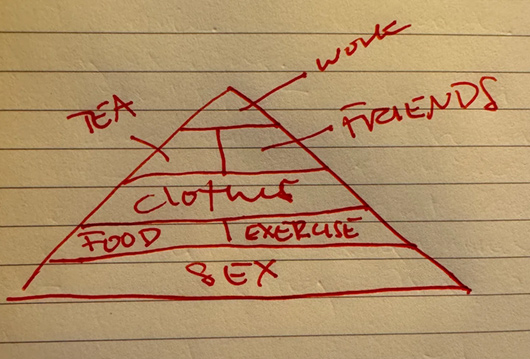 WORK
TEA
FRIENDS
Clothes
FOOD EXERCISE
SEX